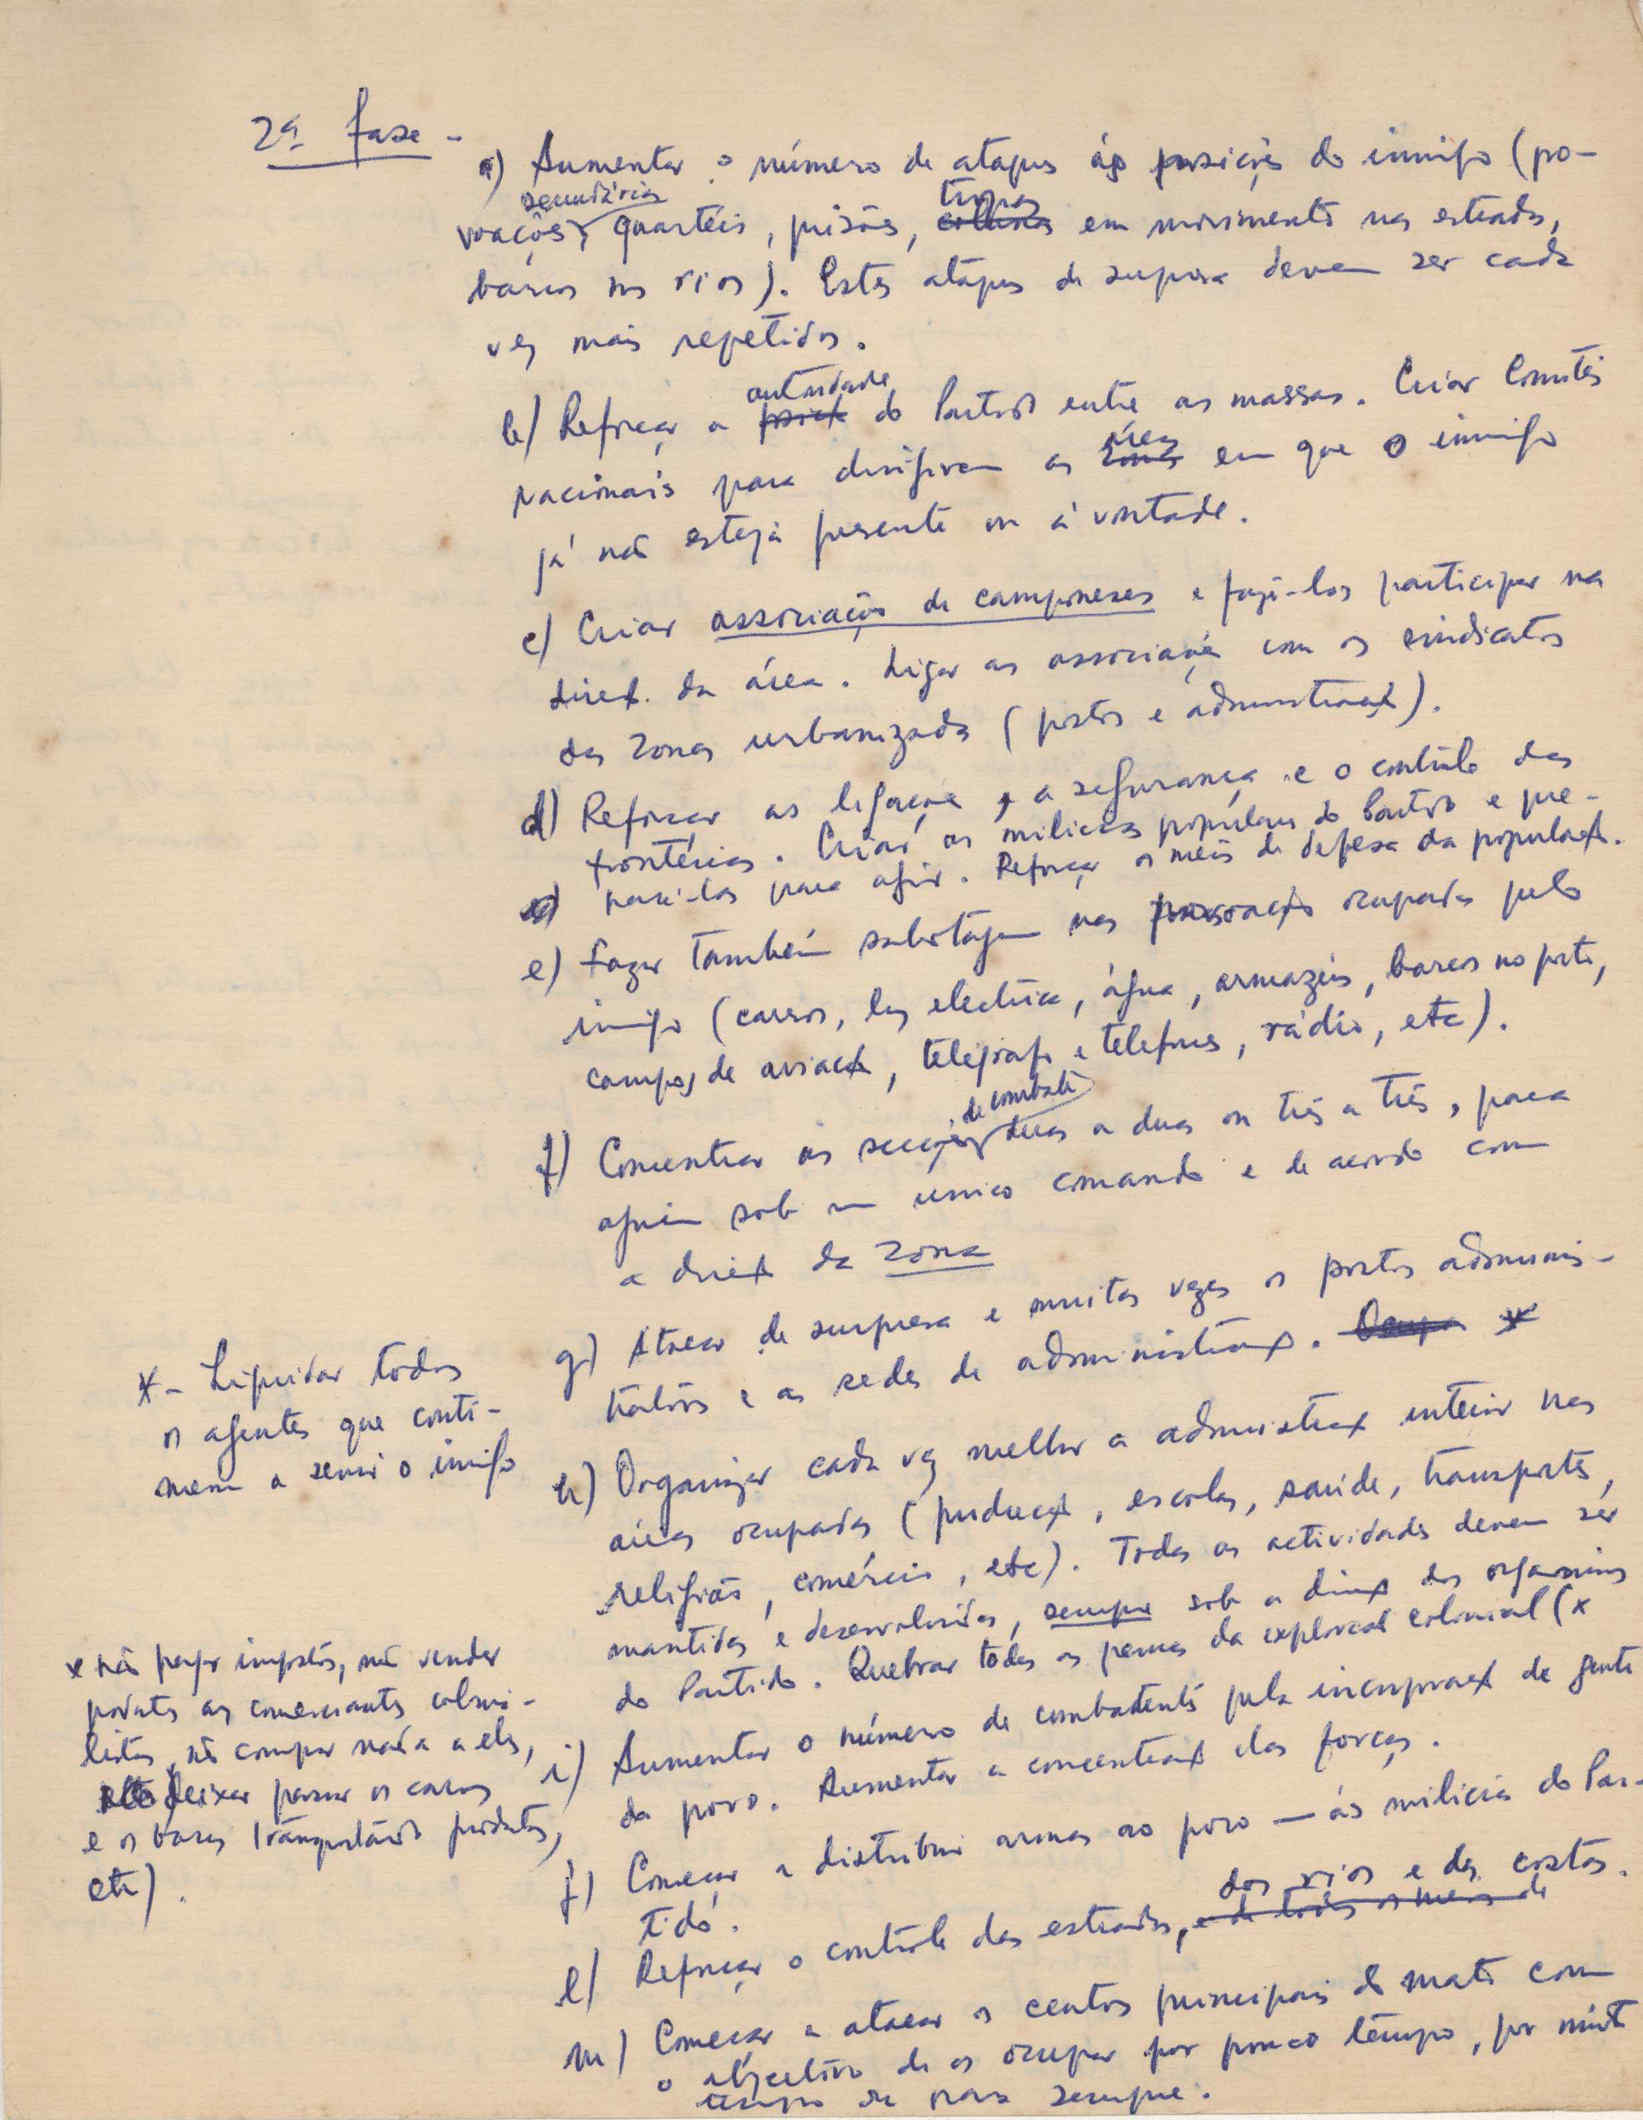 2ª fase -
a) Aumentar o número de ataques às posições do inimigo (po-
secundárias
tropas
voações, quartéis, prisões, colunas em movimento nas estradas,
barcos nos rios). Estes ataques de surpresa devem ser cada
vez mais repetidos.
autoridade
b) Reforçar a do Partido entre as massas. Criar Comités
áreas
nacionais para dirigirem as zonas em que o inimigo
já não esteja presente ou à vontade.
c) Criar associações de camponeses e fazê-los participar na
direcç. da área. Ligar as associações com os sindicatos
das zonas urbanizadas (postos e administração).
d) Reforçar as ligações, a segurança e o contrôle das
fronteiras. Criar as milícias populares do Partido e pre-
pará-las para agir. Reforçar os meios de defesa da população.
e) Fazer também sabotagem nas povoações ocupadas pelo
inimigo (carros, luz eléctrica, água, armazéns, barcos no porto,
campos de aviação, telégrafo e telefones, rádio, etc).
de combate
f) Concentrar as secções duas a duas ou três a três, para
agirem sob um único comando e de acordo com
a direcção da zona
g) Atacar de surpresa e muitas vezes os postos adminis-
trativos e as sedes de administração. Ocupar *
* - Liquidar todos
os agentes que conti-
nuem a servir o inimigo
h) Organizar cada vez melhor a administração interior nas
áreas ocupadas (produção, escolas, saúde, transportes,
religião, comércio, etc). Todas as actividades devem ser
mantidas e desenvolvidas, sempre sob a direcção dos organismos
do Partido. Quebrar todas as pernas da exploração colonial (x
x não pagar impostos, não vender
produtos aos comerciantes colonia-
listas, não comprar nada a eles,
não deixar passar os carros
e os barcos transportando produtos,
etc).
i) Aumentar o número de combatentes pela incorporação de gente
do povo. Aumentar a concentração das forças.
j) Começar a distribuir armas ao povo — às milícias do Par-
tido.
dos rios e das costas.
l) Reforçar o contrôle das estradas, e de todos os meios de
m) Começar a atacar os centros principais do mato com
o objectivo de os ocupar por pouco tempo, por muito
tempo ou para sempre.